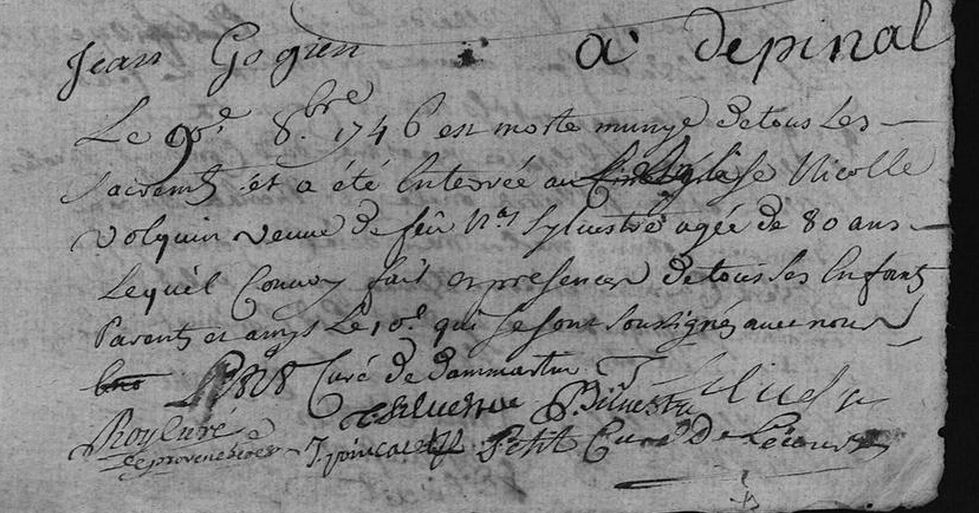 Jean Gogien à depinal
Le 9.e 8.bre 1746 est morte munye de tous les
sacrem.ts et a été Enterrée au Nicolle
volquin veuve de feü N.as Sylvestre agée de 80 ans
Lequel Convoy fait en presence de tous ses Enfants
Parents et amys Le 10.e qui se sont soussignez avec nous
Curé de dammartin
Roy Curé Silvestre Silvestre
de provenchere Petit Curé De Lécourt